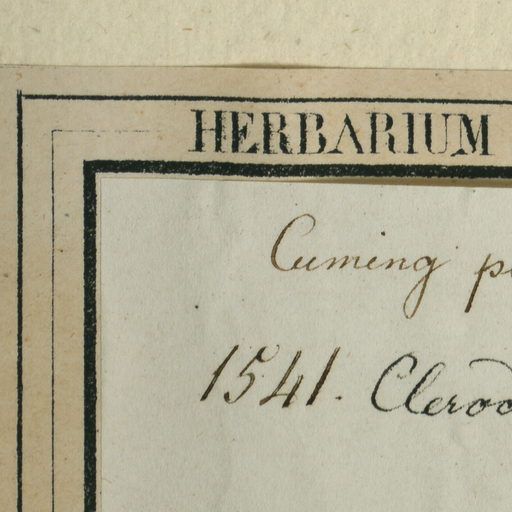 HERBARIUM
Cuming p
1541. Clerod